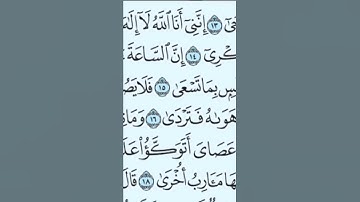 ىٰٓ ١٣ إِنَّنِىٓ أَنَا ٱللَّهُ لَآ إِلَٰهَ
كْرِىٓ ١٤ إِنَّ ٱلسَّاعَةَ
سٍۭ بِمَا تَسْعَىٰ ١٥ فَلَا يَصُ
هَوَىٰهُ فَتَرْدَىٰ ١٦ وَمَا
عَصَاىَ أَتَوَكَّؤُا۟ عَلَ
هَا مَـَٔارِبُ أُخْرَىٰ ١٨ قَالَ